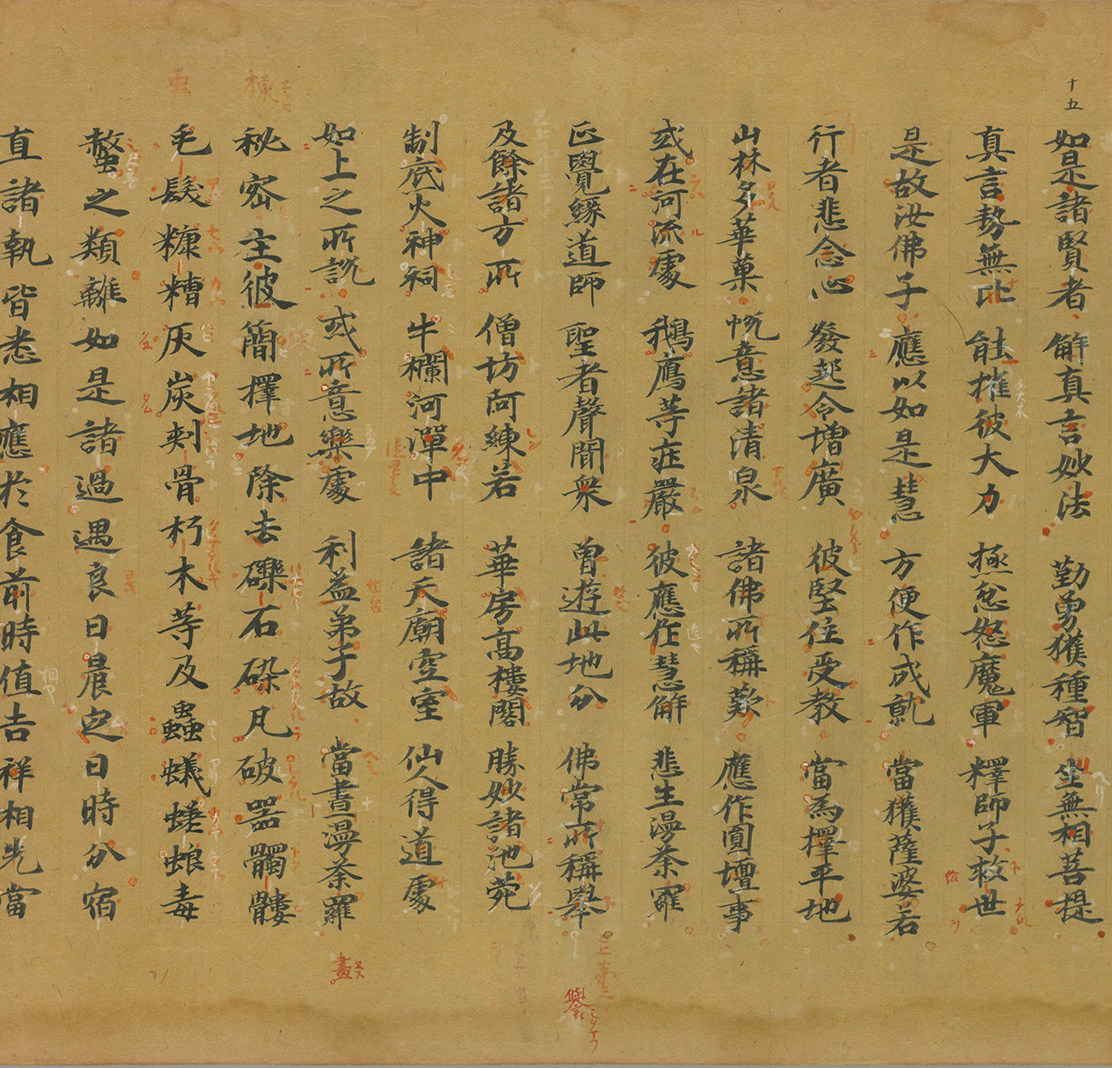 十五
如是諸賢者 解真言妙法 勤勇獲種智 坐無相菩提
真言勢無比 能摧彼大力 極忿怒魔軍 釋師子救世
是故汝佛子 應以如是慧 方便作成就 當獲薩婆若
行者悲念心 發起令增廣 彼堅住受教 當為擇平地
山林多華菓 悅意諸清泉 諸佛所稱歎 應作圓壇事
或在河流處 鵝鴈等莊嚴 彼應作慧解 悲生漫荼羅
正覺緣道師 聖者聲聞衆 曾遊此地分 佛常所稱舉
及餘諸方所 僧坊阿練若 華房高樓閣 勝妙諸池菀
制底火神祠 牛欄河潬中 諸天廟空室 仙人得道處
如上之所說 或所意樂處 利益弟子故 當晝漫荼羅
秘密主彼簡擇地除去礫石碎凡破器髑髏
毛髮糠糟灰炭刺骨朽木等及蟲蟻蜣蜋毒
螫之類離如是諸過遇良日晨之日時分宿
直諸執皆悉相應於食前時值吉祥相先當